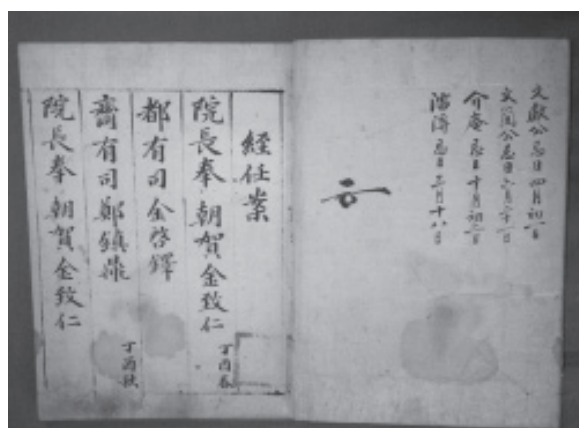 文獻公忌日四月初日
文簡公忌日六月二十一日
介庵忌日十月初日
忌日三月十八日
経任案
院長奉 朝賀金致仁 丁酉春
都有司金啓鐸
齋有司鄭鎭
院長奉 朝賀金致仁 丁酉秋